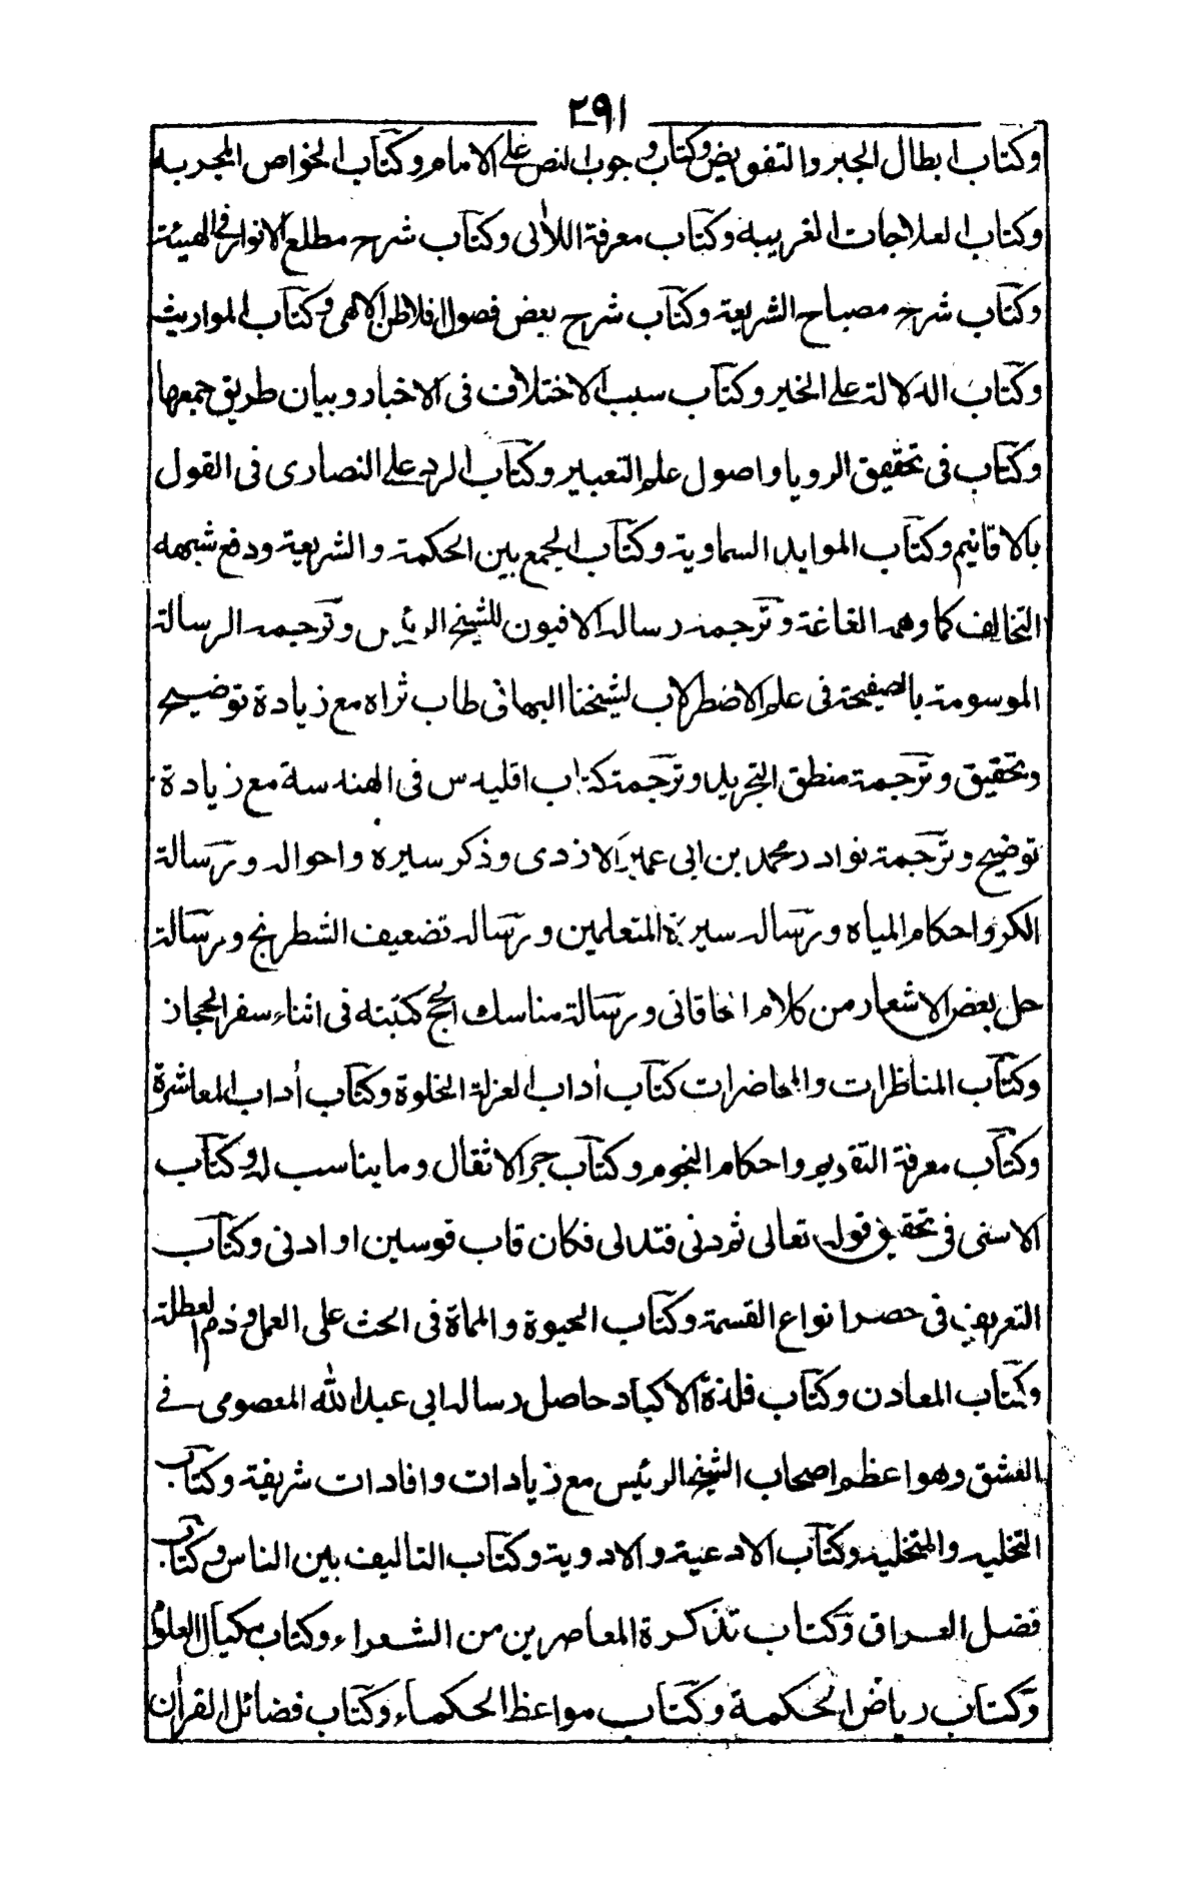 ٢٩١
وكتاب ابطال الجبر والتفويض وكتاب وجوب النص على الامام وكتاب الخواص المجربه
وكتاب العلاجات الغريبه وكتاب معرفة اللآلى وكتاب شرح مطلع الانوار فى الهيئة
وكتاب شرح مصباح الشريعة وكتاب شرح بعض فصول افلاطن الالهى وكتاب المواريث
وكتاب الدلالة على الخير وكتاب سبب الاختلاف فى الاخبار وبيان طريق جمعها
وكتاب فى تحقيق الرويا واصول علم التعبير وكتاب الرد على النصارى فى القول
بالاقانيم وكتاب الموايد السماوية وكتاب الجمع بين الحكمة والشريعة ودفع شبهه
التخالف كما وهمه الغاغة وترجمة رساله الافيون للشيخ الرئيس وترجمه الرسالة
الموسومة بالصفيحة فى علم الاضطرلاب لشيخنا البهائى طاب ثراه مع زيادة توضيح
وتحقيق وترجمة منطق التجريد وترجمة كتاب اقليدس فى الهندسة مع زيادة
توضيح وترجمة نوادر محمد بن ابى عمير الازدى وذكر سيره واحواله ورسالة
الكر واحكام المياه ورساله سيرة المتعلمين ورساله تضعيف الشطرنج ورسالة
حل بعض الاشعار من كلام الخاقانى ورسالة مناسك الحج كتبته فى اثناء سفر الحجاز
وكتاب المناظرات والمحاضرات كتاب أداب العزلة الخلوة وكتاب أداب المعاشرة
وكتاب معرفة التقويم واحكام النجوم وكتاب جر الاثقال وما يناسب له وكتاب
الاسنى فى تحقيق قوله تعالى ثم دنى فتدلى فكان قاب قوسين او ادنى وكتاب
التعريف فى حصر انواع القسمة وكتاب الحيوة والماة فى الحث على العمل وذم العطلة
وكتاب المعادن وكتاب فلذة الاكباد حاصل رساله ابى عبدالله المعصومى فى
العشق وهو اعظم اصحاب الشيخ الرئيس مع زيادات وافادات شريفة وكتاب
التخليه والتخليه وكتاب الادعية والادوية وكتاب التاليف بين الناس وكتاب
فضل العراق وكتاب تذكرة المعاصرين من الشعراء وكتاب مكيال العلوم
وكتاب رياض الحكمة وكتاب مواعظ الحكماء وكتاب فضائل القرآن